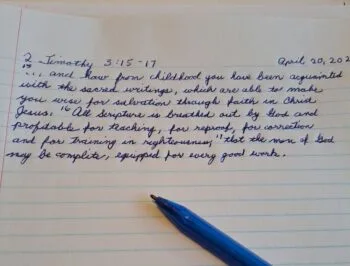 2 Timothy 3:15-17 April 20, 202
15 "... and how from childhood you have been acquainted
with the sacred writings, which are able to make
you wise for salvation through faith in Christ
Jesus. 16 All Scripture is breathed out by God and
profitable for teaching, for reproof, for correction
and for training in righteousness, 17 that the man of God
may be complete, equipped for every good work.